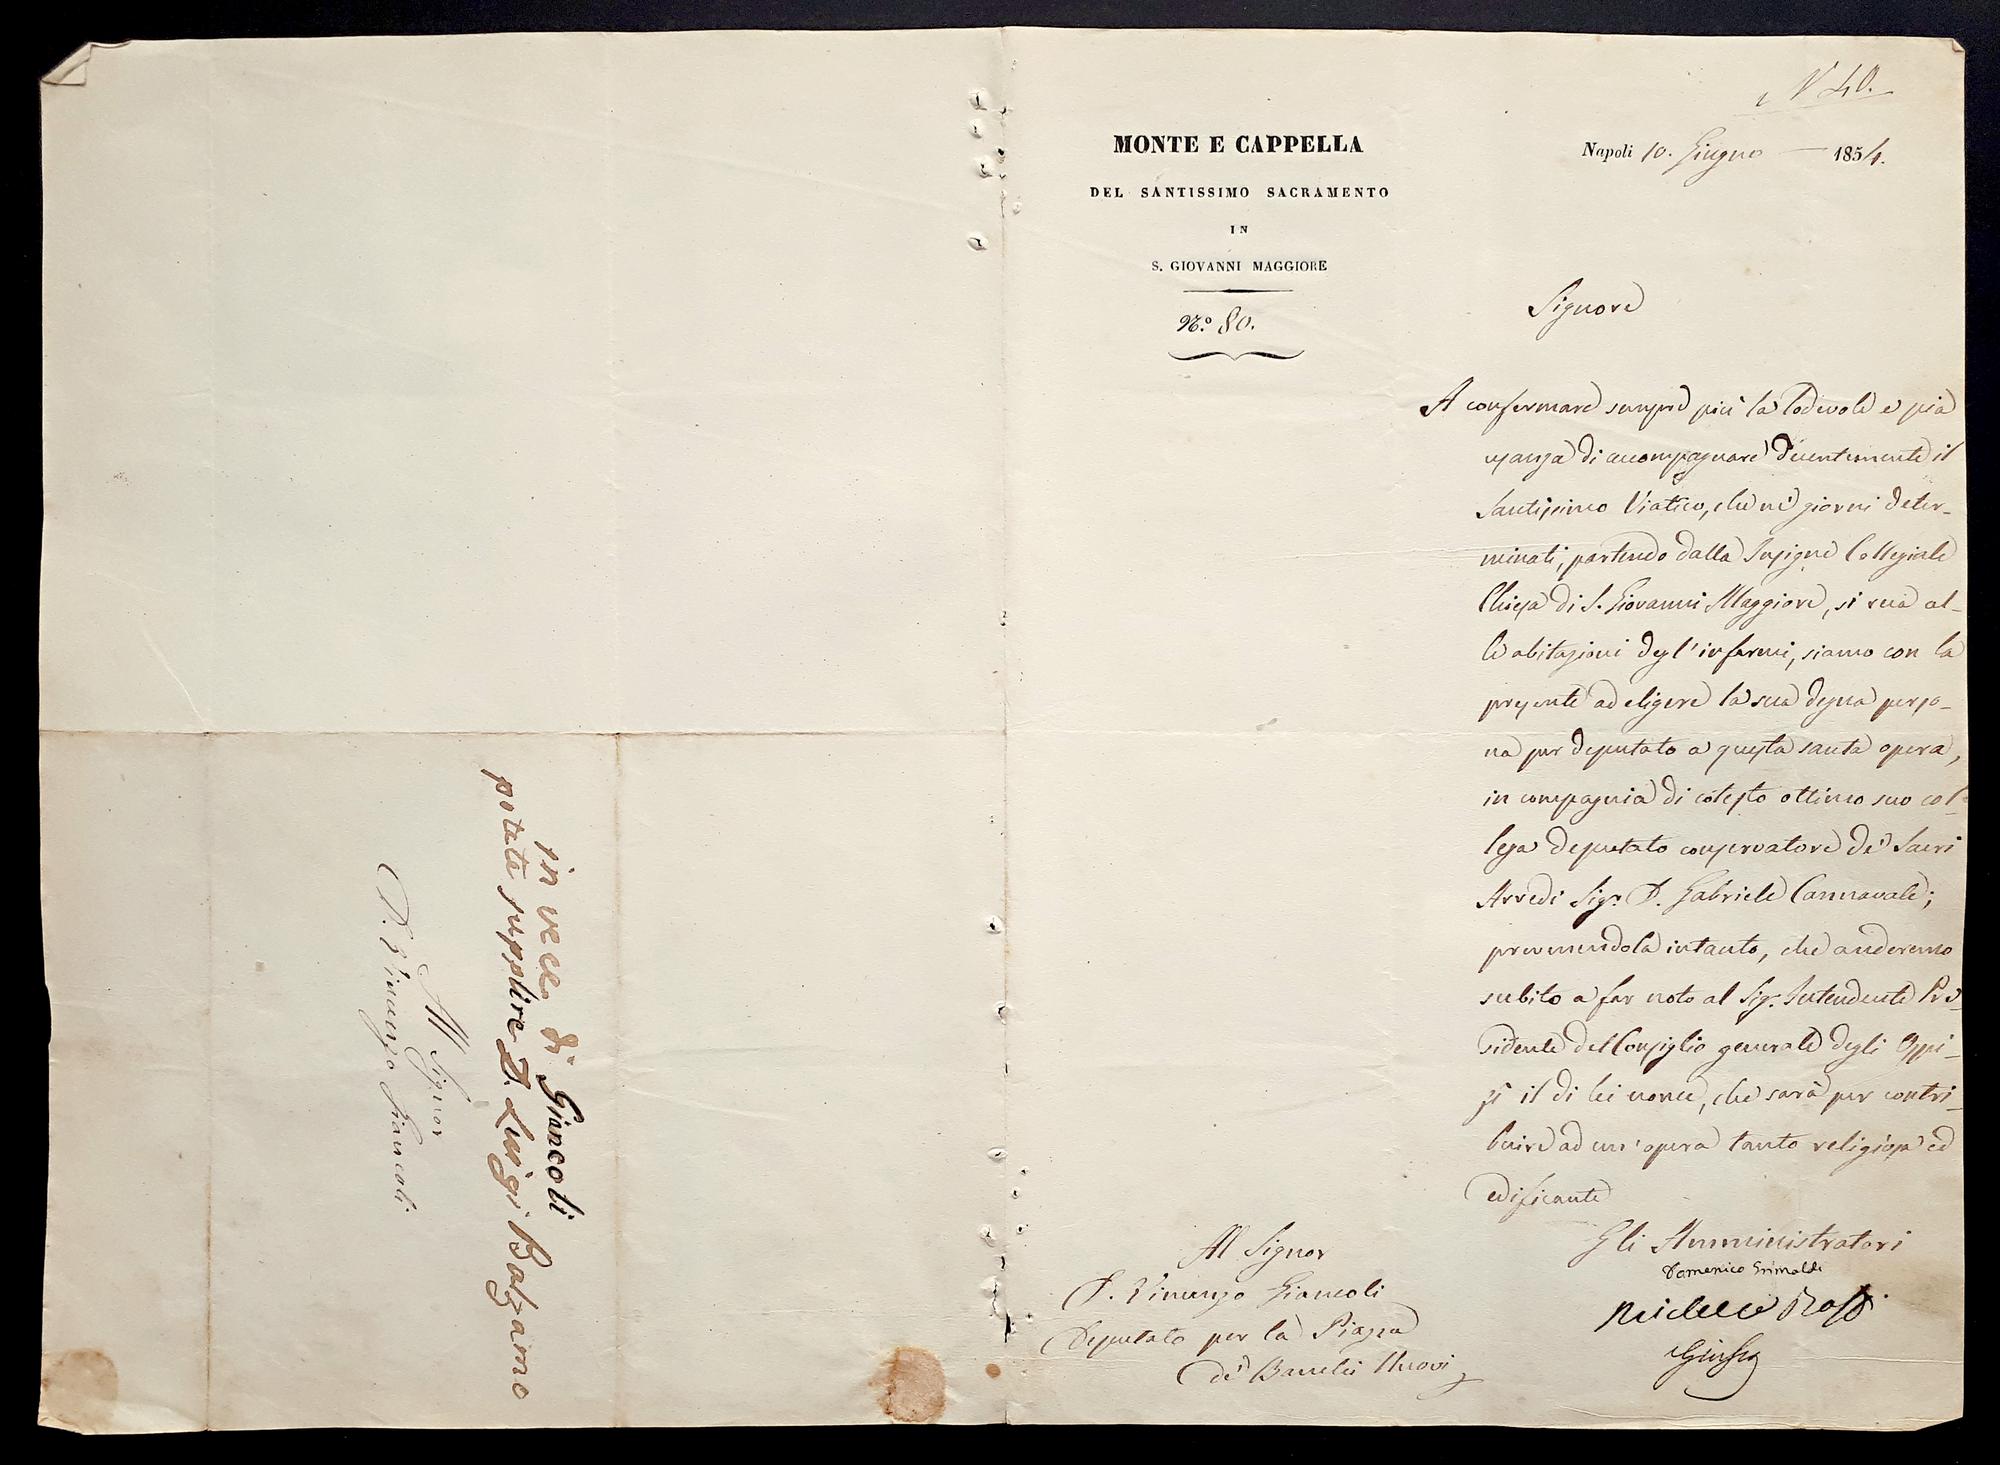 in vece di Giancoli
potete supplire D. Luigi Balzamo
Al Signor
D. Vincenzo Giancoli
N. 40.
MONTE E CAPPELLA
DEL SANTISSIMO SACRAMENTO
IN
S. GIOVANNI MAGGIORE
N.º 80.
Napoli 10. Giugno 1854.
Signore
A confermare sempre più la lodevole e pia
usanza di accompagnare decentemente il
Santissimo Viatico, che ne' giorni deter-
minati, partendo dalla Insigne Collegiale
Chiesa di S. Giovanni Maggiore, si reca al-
le abitazioni degl'infermi, siamo con la
presente ad eligere la sua degna perso-
na per deputato a questa santa opera,
in compagnia di cotesto ottimo suo col-
lega deputato conservatore de' Sacri
Arredi Sigr. D. Gabriele Cannavale;
prevenendola intanto, che anderemo
subito a far noto al Sigr. Intendente Pre
sidente del Consiglio generale degli Ospi-
zi il di lei nome, che sarà per contri-
buire ad un'opera tanto religiosa ed
edificante
Gli Amministratori
Domenico Grimaldi
Michele Rossi
Al Signor
D. Vincenzo Giancoli
Deputato per la Piazza
de' Banchi Nuovi